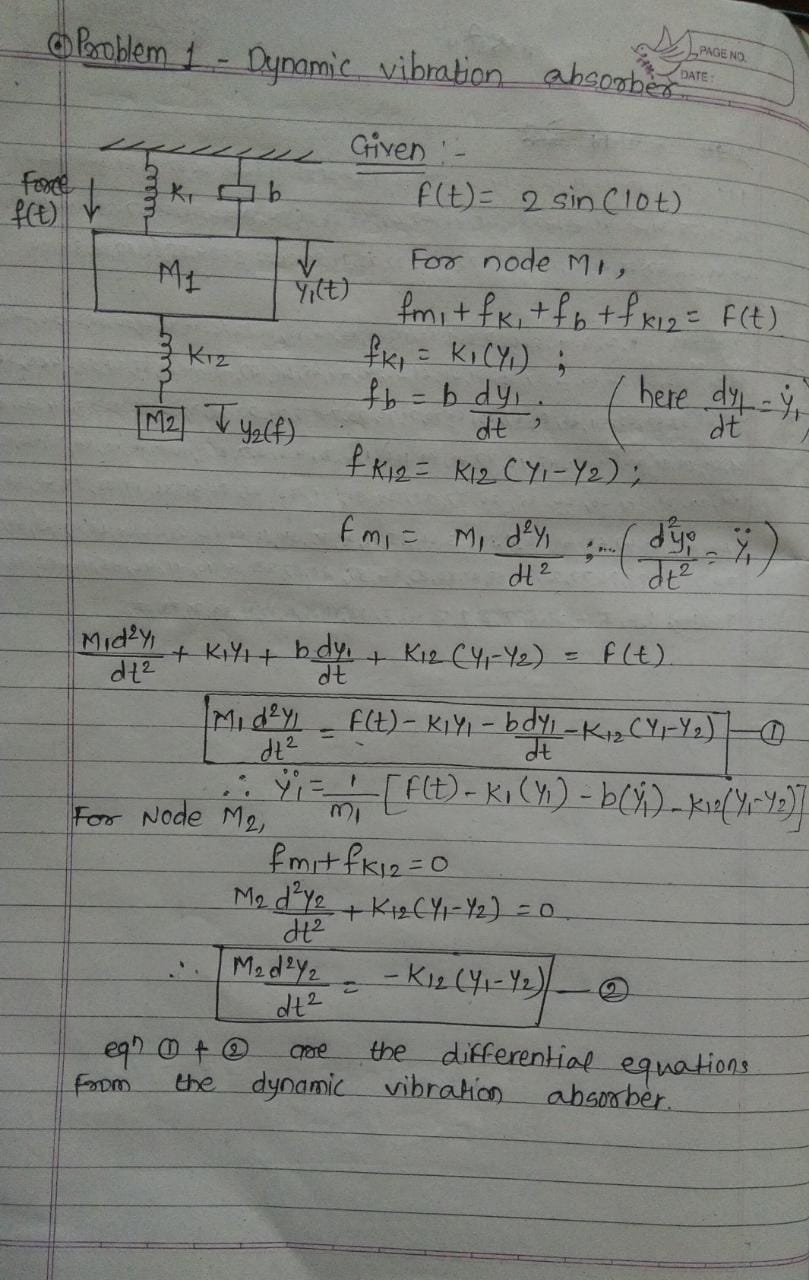 Problem 1 - Dynamic vibration absorber
PAGE NO.
DATE:
Given :-
Force
f(t)
K₁
b
f(t) = 2 sin(10t)
M1
y₁(t)
For node M₁,
fm₁ + fK₁ + fb + fK12 = F(t)
K12
fK₁ = K₁(Y₁) ;
M2
y2(f)
fb = b dy₁/dt ; (here dy₁/dt = ẏ₁)
fK12 = K12 (Y₁-Y2);
fm₁ = M₁ d²Y₁/dt² ;...(d²y₁/dt² = ÿ₁)
M₁d²Y₁/dt² + K₁Y₁ + b dy₁/dt + K12 (Y₁-Y2) = f(t)
M₁ d²Y₁/dt² = f(t) - K₁Y₁ - b dy₁/dt - K12 (Y₁-Y2) — ①
∴ ÿ₁ = 1/m₁ [f(t) - K₁(Y₁) - b(ẏ₁) - K12(Y₁-Y2)]
For Node M2,
fm₁ + fK12 = 0
M2 d²Y2/dt² + K12 (Y₁-Y2) = 0
∴ M2 d²Y2/dt² = -K12 (Y₁-Y2) — ②
eqⁿ ① + ② are the differential equations
from the dynamic vibration absorber.